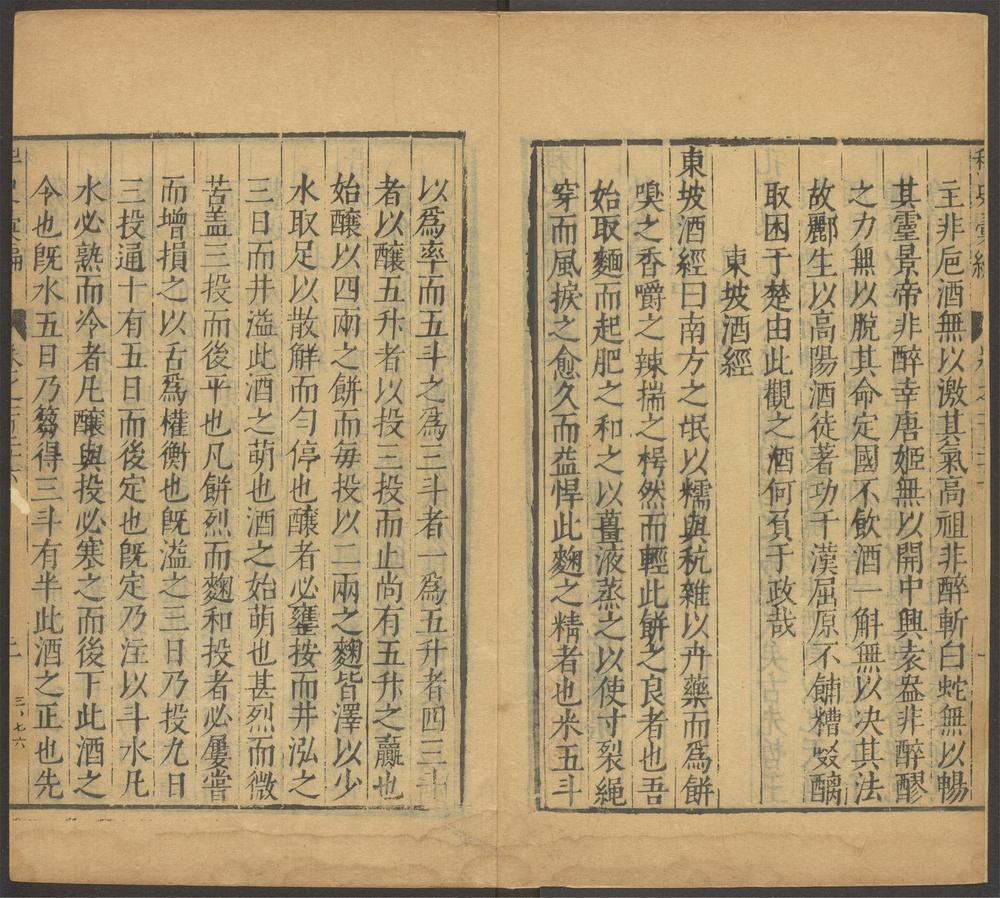 主非巵酒無以激其氣高祖非醉斬白蛇無以暢
其靈景帝非醉幸唐姬無以開中興袁盎非醉醪
之力無以脫其命定國不飲酒一斛無以决其法
故酈生以高陽酒徒著功于漢屈原不餔糟歠醨
取困于楚由此觀之酒何負于政哉
東坡酒經
東坡酒經曰南方之氓以糯與秔雜以卉藥而爲餅
嗅之香嚼之辣揣之枵然而輕此餅之良者也吾
始取麵而起肥之和之以薑液蒸之以使寸裂繩
穿而風捩之愈久而益悍此麴之精者也米五斗
以爲率而五斗之爲三斗者一爲五升者四三斗
者以釀五升者以投三投而止尚有五升之贏也
始釀以四兩之餅而每投以二兩之麴皆澤以少
水取足以散解而勻停也釀者必甕按而井泓之
三日而井溢此酒之萌也酒之始萌也甚烈而微
苦盖三投而後平也凡餅烈而麴和投者必屢嘗
而增損之以舌爲權衡也旣溢之三日乃投九日
三投通十有五日而後定也旣定乃注以斗水凡
水必熟而冷者凡釀與投必寒之而後下此酒之
今也旣水五日乃篘得三斗有半此酒之正也先
三、七六